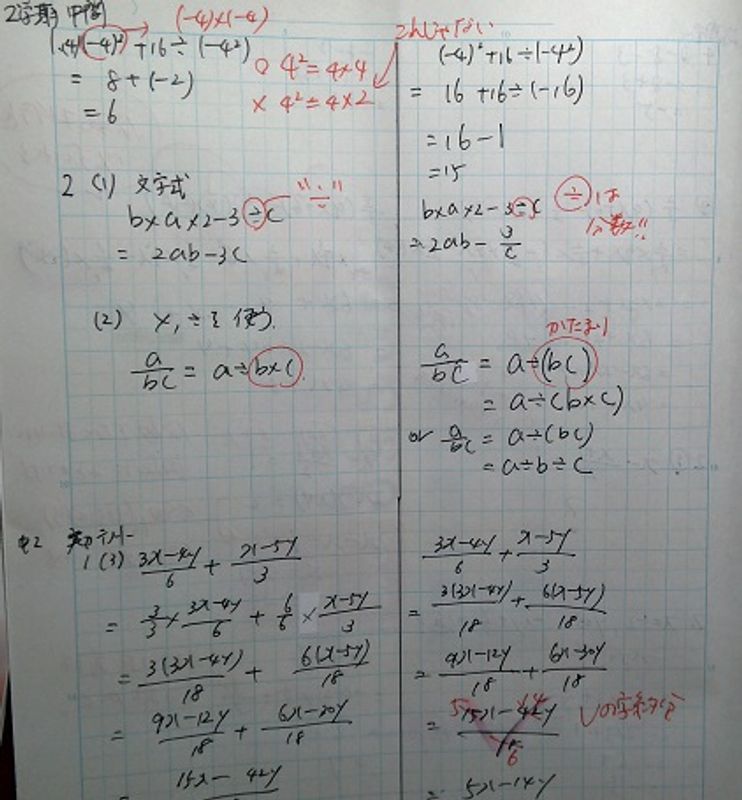 2学期 中間
(-4)×(-4)
(-4)²+16÷(-4²)
= 8+(-2)
= 6
○ 4²=4×4
× 4²=4×2
(-4)²+16÷(-4²)
= 16+16÷(-16)
=16-1
=15
2 (1) 文字式
b×a×2-3÷c
= 2ab-3c
b×a×2-3÷c
= 2ab-3/c
÷は
分数!!
(2) ×,÷を使う.
a/bc = a÷b×c.
a/bc = a÷(bc)
= a÷(b×c)
or a/bc = a÷(bc)
= a÷b÷c
1 (3) (3x-4y)/6 + (x-5y)/3
= 3/3×(3x-4y)/6 + 6/6×(x-5y)/3
= 3(3x-4y)/18 + 6(x-5y)/18
= (9x-12y)/18 + (6x-30y)/18
15x-42y
(3x-4y)/6 + (x-5y)/3
= 3(3x-4y)/18 + 6(x-5y)/18
= (9x-12y)/18 + (6x-30y)/18
= (15x-42y)/18
5 14
6
= 5x-14y